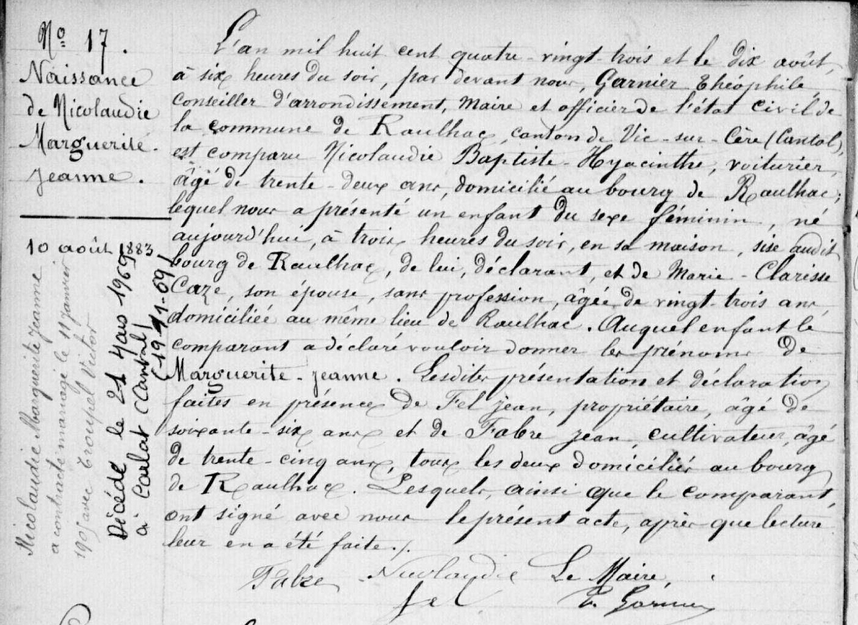 N° 17.
Naissance
de Nicolaudie
Marguerite-
Jeanne.
10 août 1883
Nicolaudie Marguerite Jeanne
a contracté mariage le 11 janvier
1905 avec Troupel Victor
Décédé le 21 Mars 1969
à Carlat (Cantal)
L'an mil huit cent quatre-vingt-trois et le dix août,
à six heures du soir, par devant nous, Garnier Théophile,
conseiller d'arrondissement, Maire et officier de l'état civil de
la commune de Raulhac, canton de Vic-sur-Cère (Cantal),
est comparu Nicolaudie Baptiste-Hyacinthe, voiturier,
âgé de trente-deux ans, domicilié au bourg de Raulhac;
lequel nous a présenté un enfant du sexe féminin, né
aujourd'hui, à trois heures du soir, en sa maison, sise audit
bourg de Raulhac, de lui, déclarant, et de Marie-Claresse
Caze, son épouse, sans profession, âgée de vingt-trois ans,
domiciliée au même lieu de Raulhac. Auquel enfant le
comparant a déclaré vouloir donner les prénoms de
Marguerite-Jeanne. Lesdites présentation et déclaration
faites en présence de Fel Jean, propriétaire, âgé de
soixante-six ans et de Fabre Jean, cultivateur, âgé
de trente-cinq ans, tous les deux domiciliés au bourg
de Raulhac. Lesquels, ainsi que le comparant,
ont signé avec nous le présent acte, après que lecture
leur en a été faite.
Fabre Nicolaudie Le Maire,
Fel T. Garnier